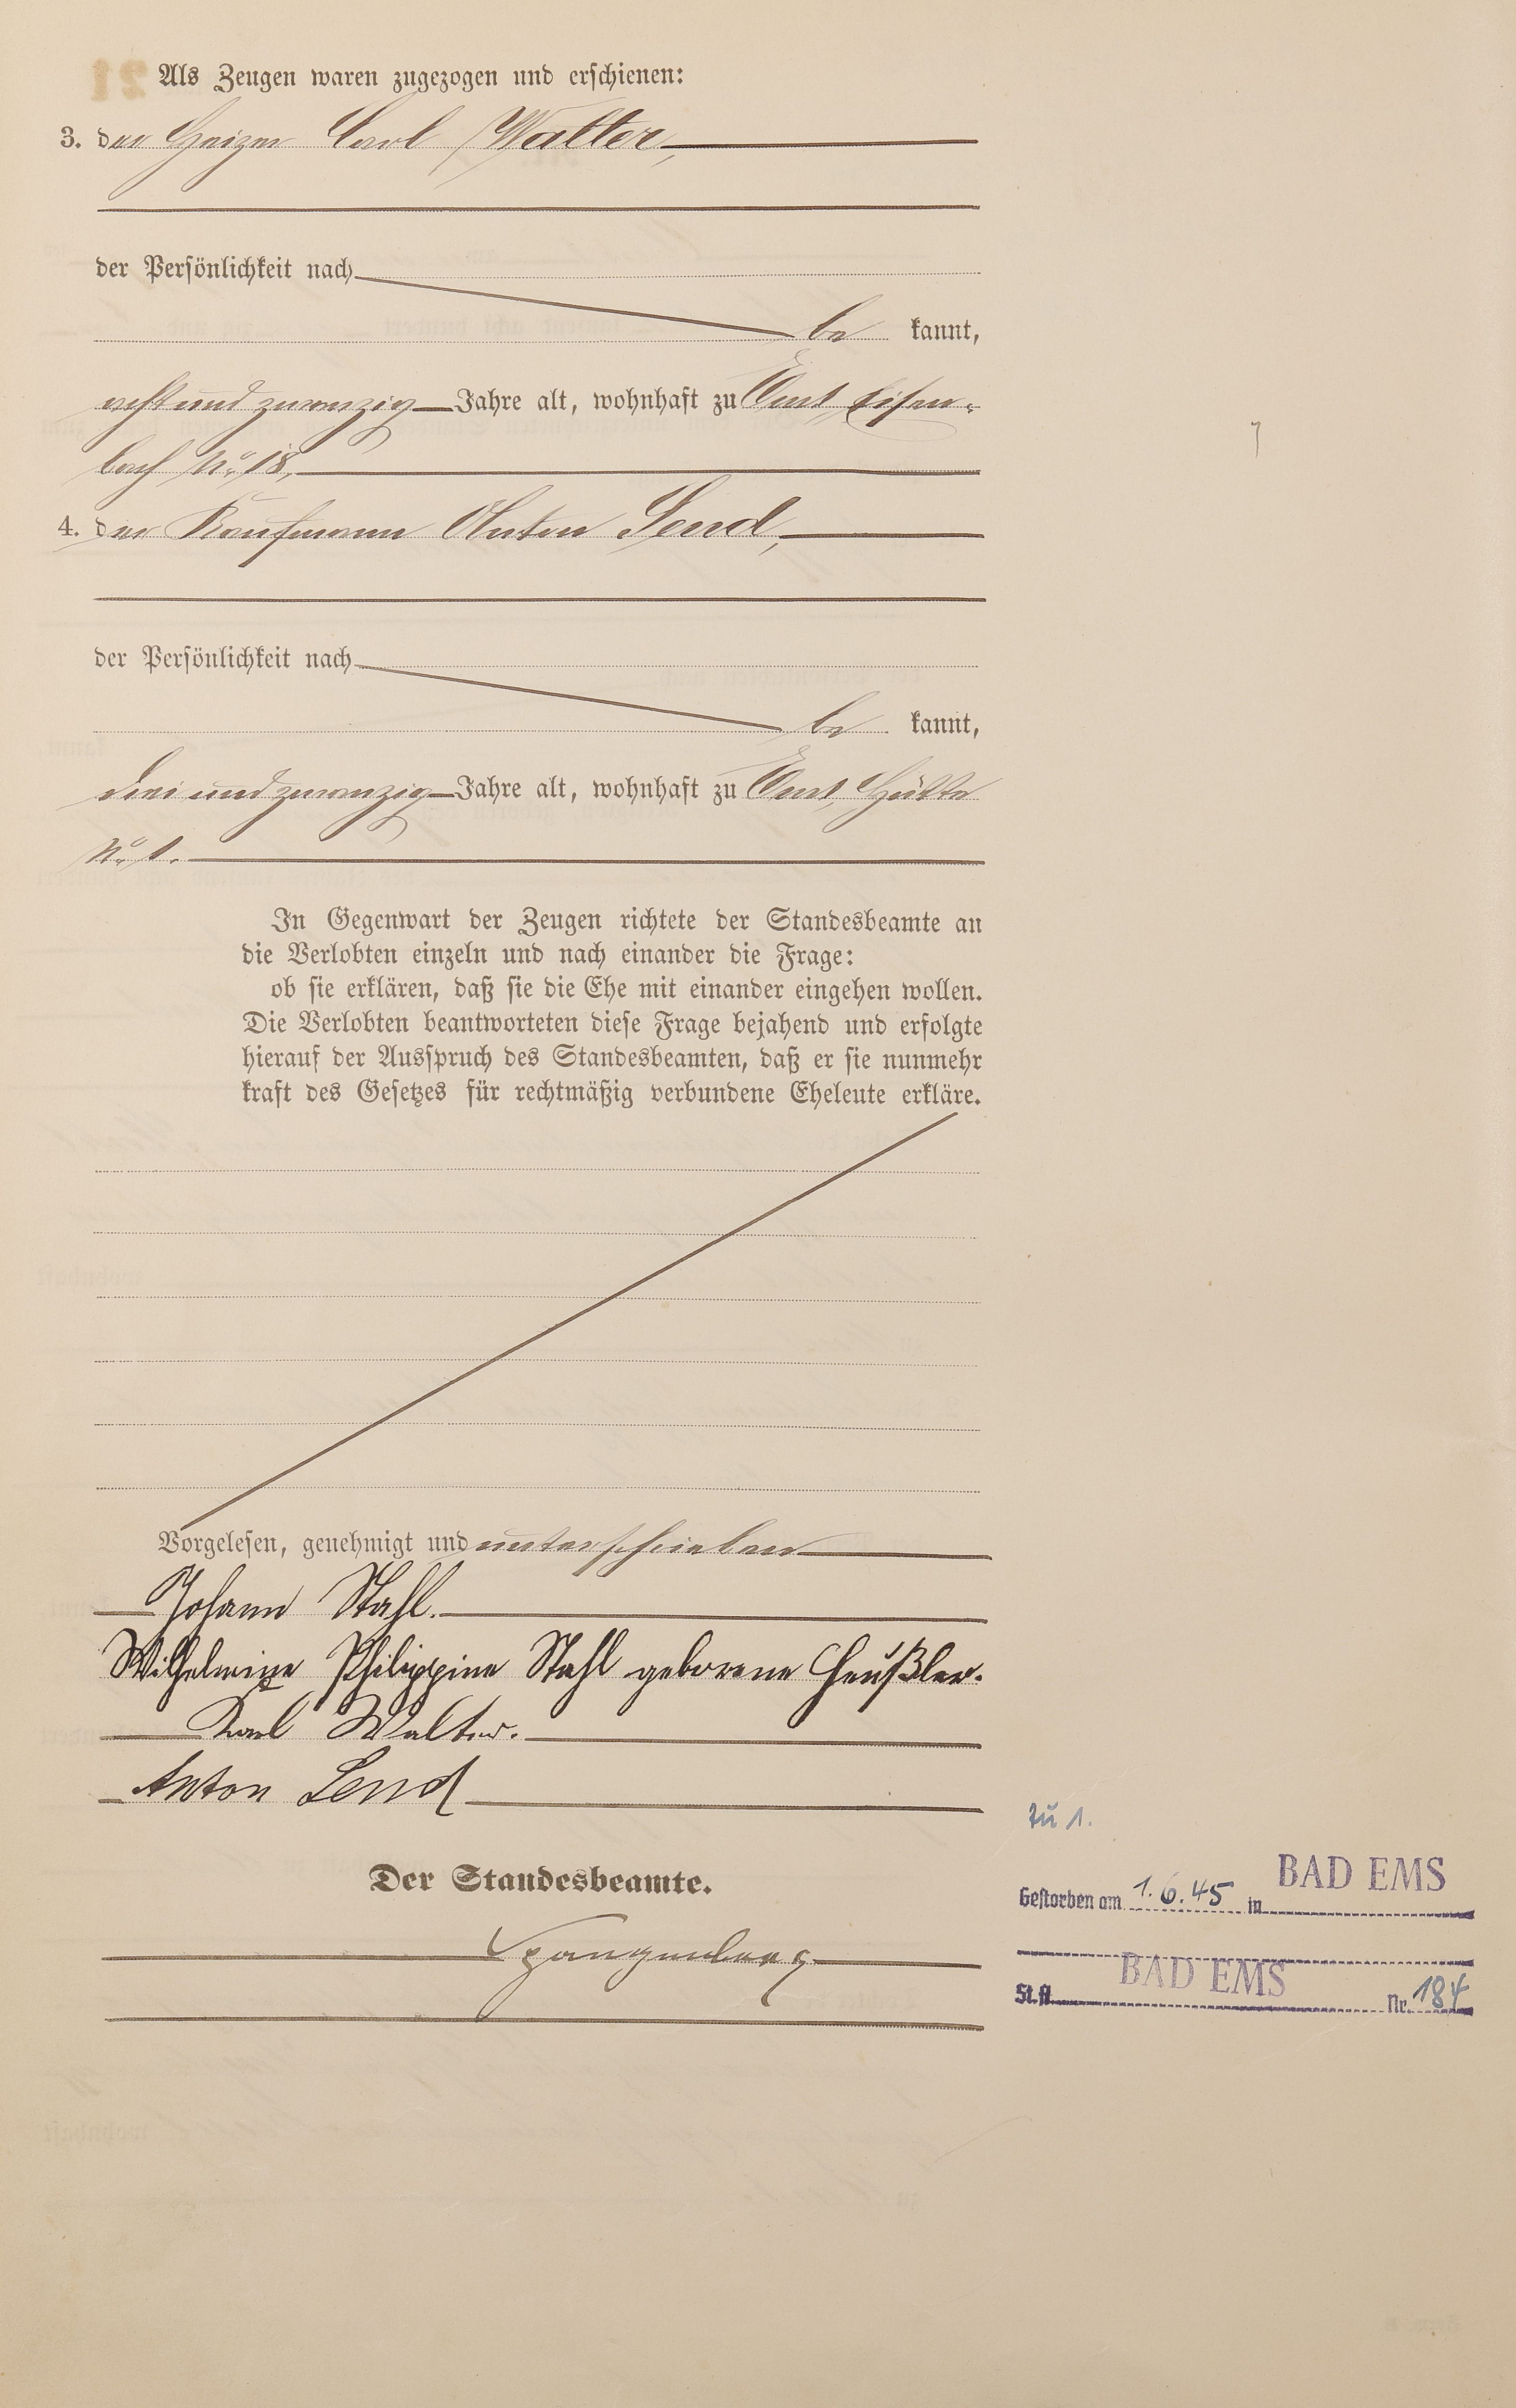 Als Zeugen waren zugezogen und erschienen:
3. der Heizer Carl Walter,
der Persönlichkeit nach
be kannt,
acht und zwanzig Jahre alt, wohnhaft zu Ems, Eisen-
bach No. 18,
4. der Kaufmann Anton Lend,
der Persönlichkeit nach
be kannt,
drei und zwanzig Jahre alt, wohnhaft zu Ems, Hütte
No. 1.
In Gegenwart der Zeugen richtete der Standesbeamte an
die Verlobten einzeln und nach einander die Frage:
ob sie erklären, daß sie die Ehe mit einander eingehen wollen.
Die Verlobten beantworteten diese Frage bejahend und erfolgte
hierauf der Ausspruch des Standesbeamten, daß er sie nunmehr
kraft des Gesetzes für rechtmäßig verbundene Eheleute erkläre.
Vorgelesen, genehmigt und unterschrieben
Johann Stahl.
Wilhelmine Philippine Stahl geborene Heußler.
Karl Walter.
Anton Lend
Der Standesbeamte.
Spangenberg
zu 1.
Gestorben am 1.6.45 in BAD EMS
St.A. BAD EMS Nr. 184